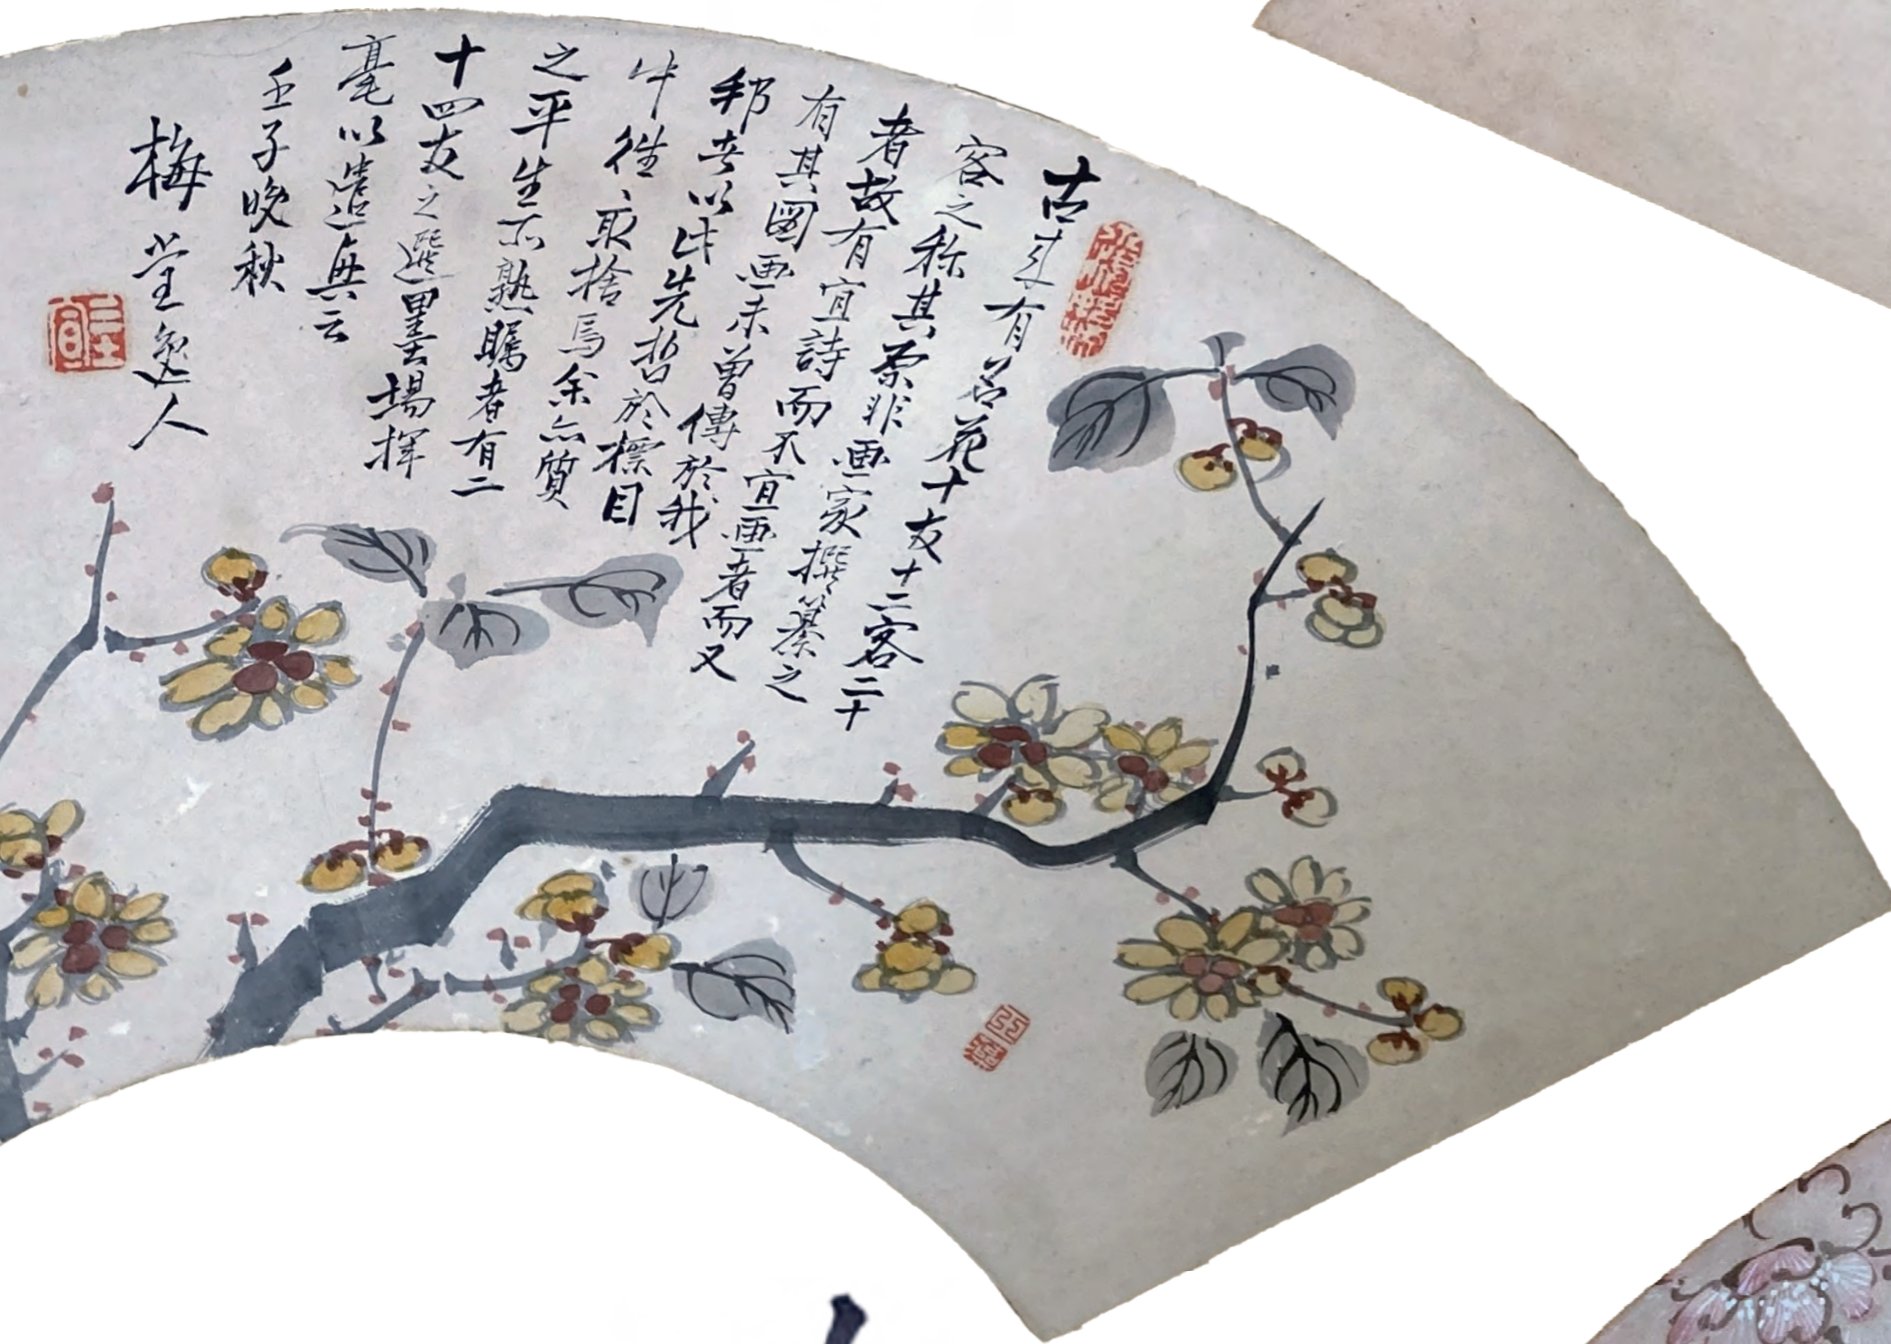 古来有名花十友十二客二十
客之称其原非画家撰纂之
者故有宜詩而不宜画者而又
有其圖画未曾傳於我
邦者以此先哲於標目
中往々取捨焉余亦質
之平生所熟矚者有二
十四友之選墨場揮
毫以遣興云
壬子晩秋
梅堂逸人